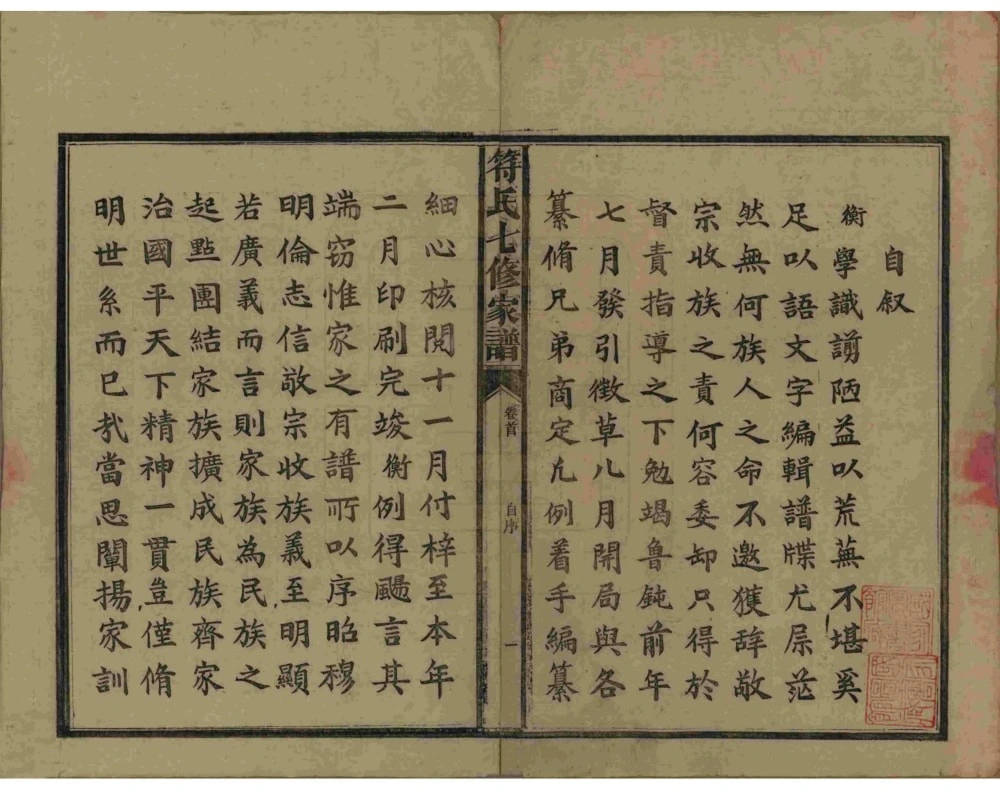 自叙
衡學識謭陋益以荒蕪不堪奚
足以語文字編輯譜牒尤屬茫
然無何族人之命不邀獲辞敬
宗收族之責何容委卸只得於
督責指導之下勉竭鲁鈍前年
七月發引徵草八月開局與各
纂脩兄弟商定凢例着手編纂
符氏七修家譜
卷首
自序
一
細心核閱十一月付梓至本年
二月印刷完竣衡例得颺言其
端窃惟家之有譜所以序昭穆
明倫志信敬宗收族義至明顯
若廣義而言則家族為民族之
起點團結家族擴成民族齊家
治國平天下精神一貫豈僅脩
明世系而已㢤當思闡揚家訓